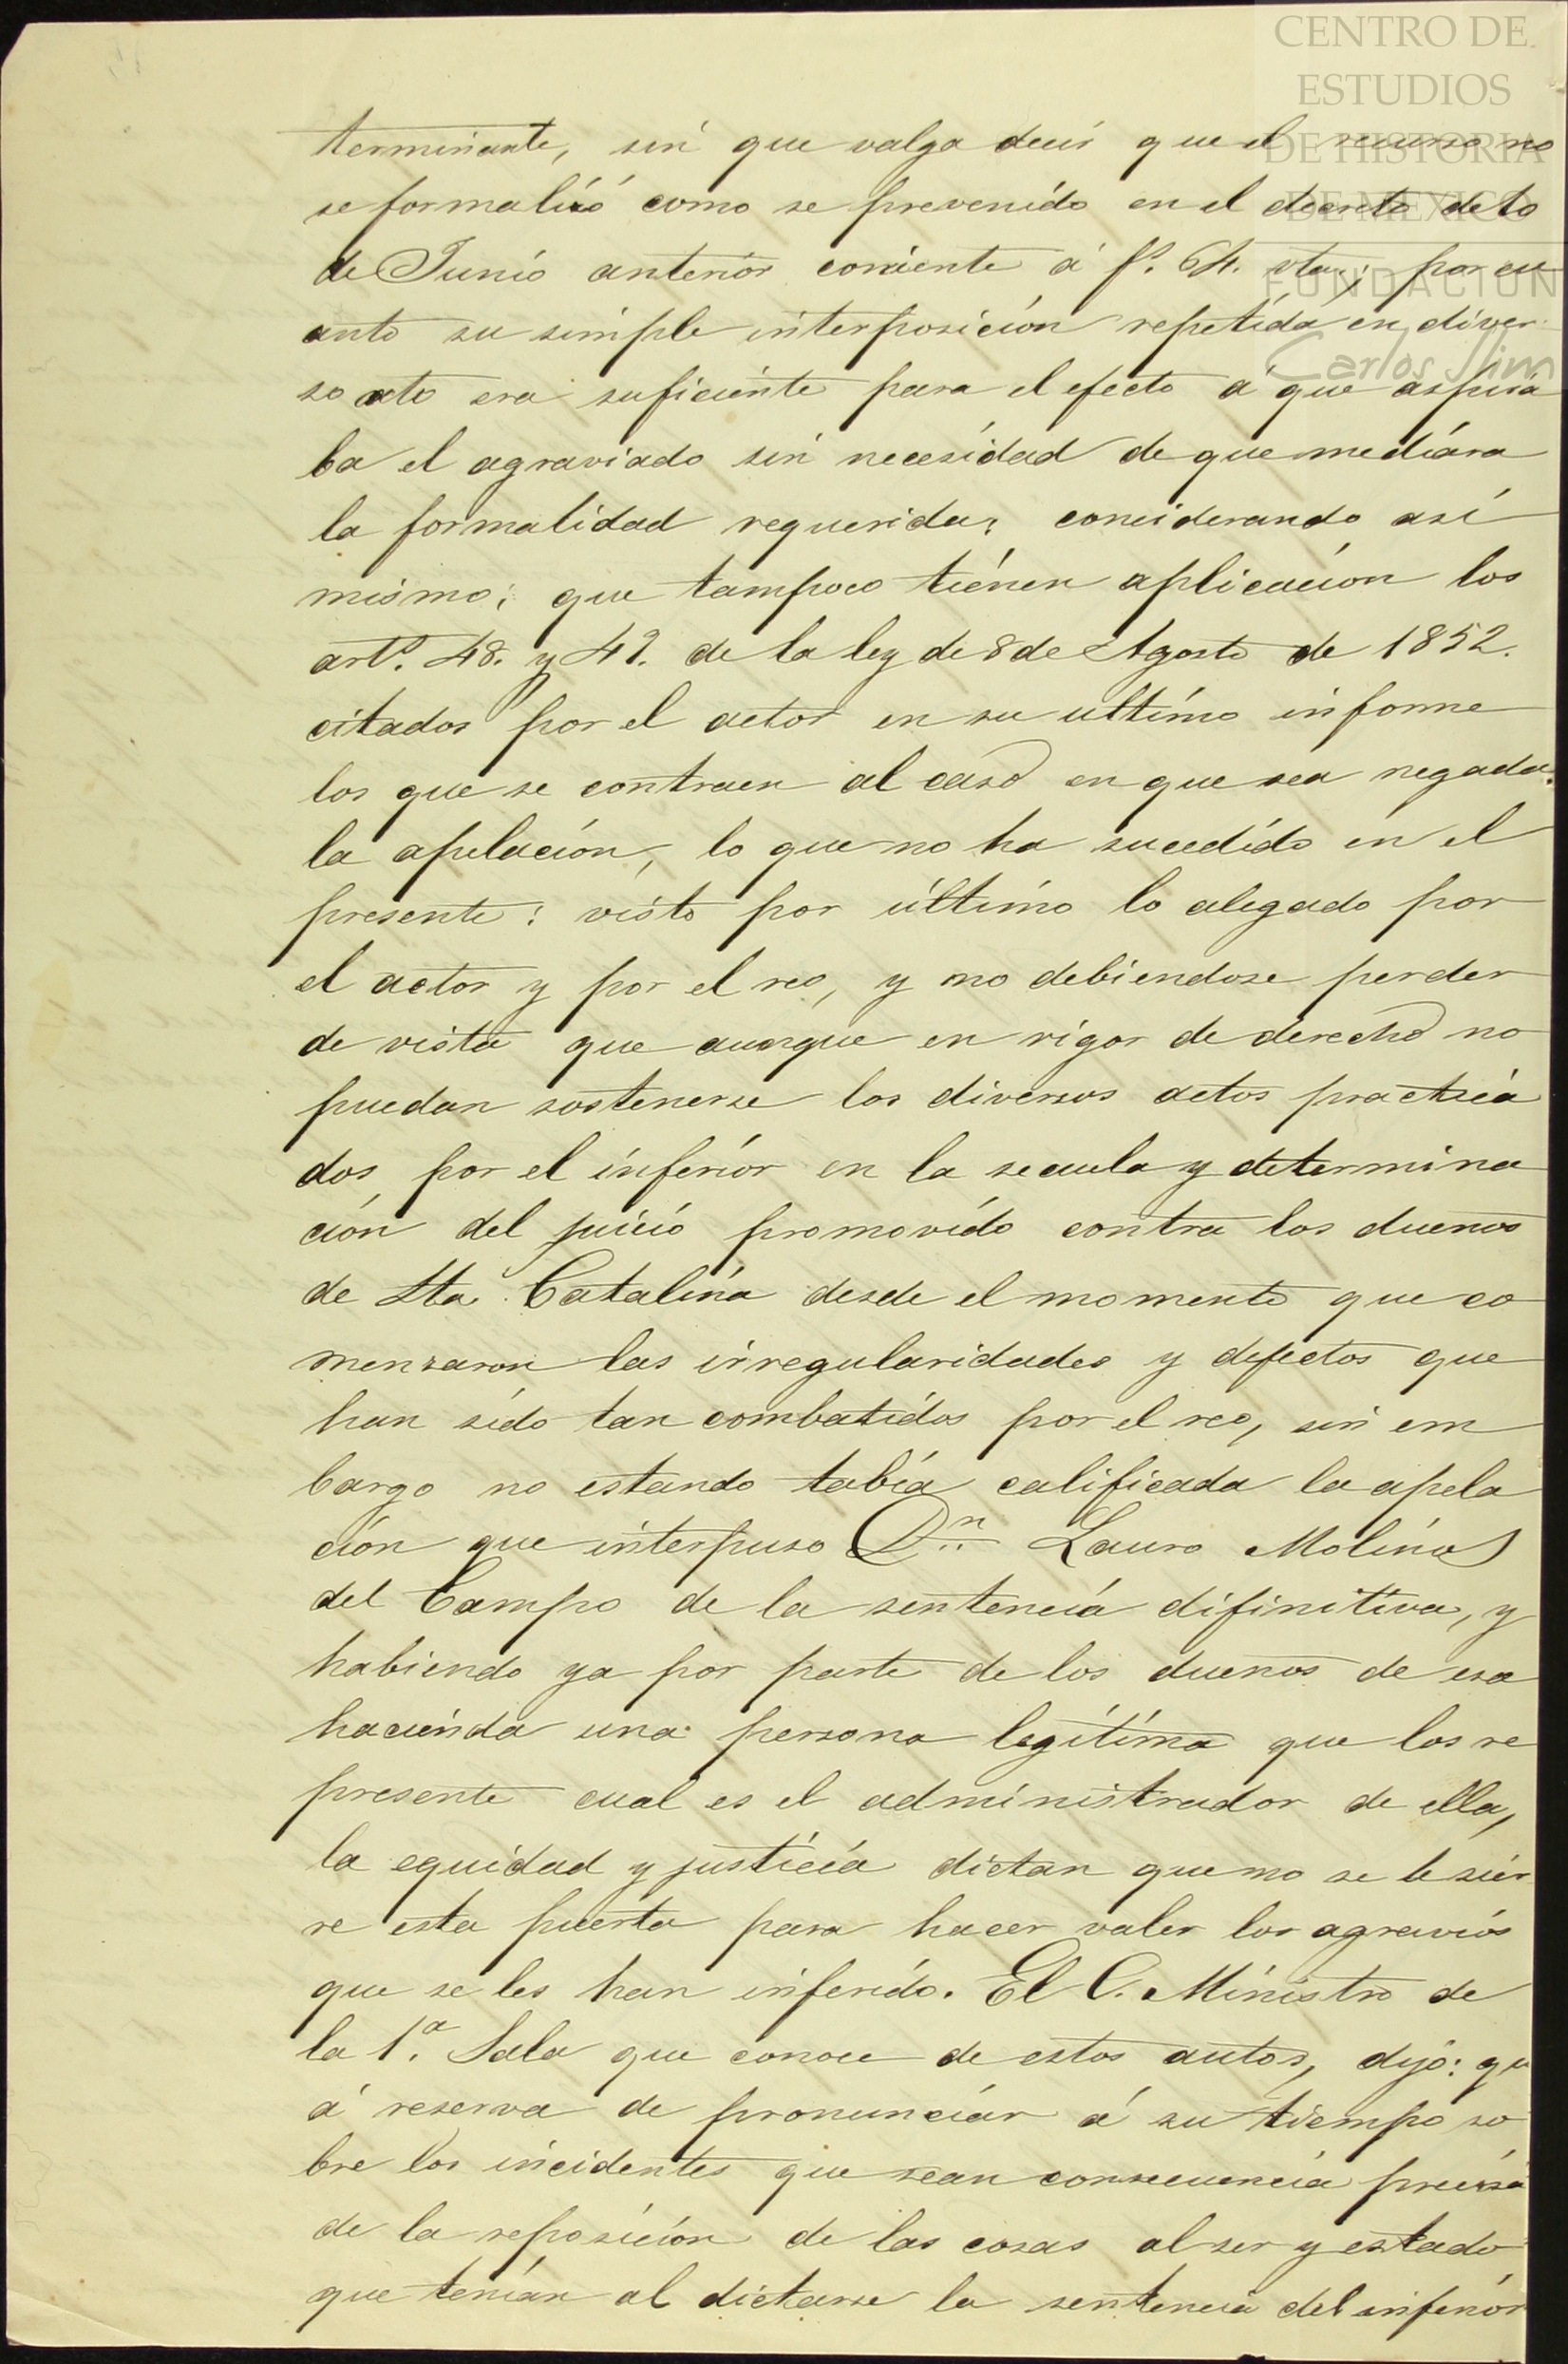 CENTRO DE
ESTUDIOS
DE HISTORIA
DE MEXICO
FUNDACION
Carlos Slim
terminante, sin que valga decir que el recurso no
se formalizó como se prevenido en el decreto de 10
de Junio anterior corriente á f.º 64. vta.; por cu
anto su simple interposición repetida en diver
so acto era suficiente para el efecto á que aspira
ba el agraviado sin necesidad de que mediára
la formalidad requerida; conciderando así
mismo; que tampoco tiénen aplicacion los
artº. 48. y 49. de la ley de 8 de Agosto de 1852.
citados por el actor en su ultimo informe
los que se contraen al caso en que sea negada
la apelación, lo que no ha sucedido en el
presente: visto por último lo alegado por
el actor y por el reo, y no debiendose perder
de vista que aunque en rigor de derecho no
puedan sostenerse los diversos actos practica
dos por el inferiór en la secuela y determina
ción del juicio promovido contra los duenos
de Sta. Catalina desde el momento que co
menzaron las irregularidades y defectos que
han sido tan combatidos por el reo, sin em
bargo no estando tabía calificada la apela
ción que interpuso Dn. Lauro Molina
del Campo de la sentencia difinitiva, y
habiendo ya por parte de los duenos de esa
hacienda una persona legítima que los re
presente cual es el administrador de ella,
la equidad y justicia dictan que no se le sier
re esta puerta para hacer valer los agravios
que se les han inferido. El C. Ministro de
la 1ª. Sala que conoce de estos autos, dijo: qu
á reserva de pronunciár á su tiempo so
bre los incidentes que sean consecuencia precisa
de la reposición de las cosas al ser y estado
que tenían al dictarse la sentencia del inferiór